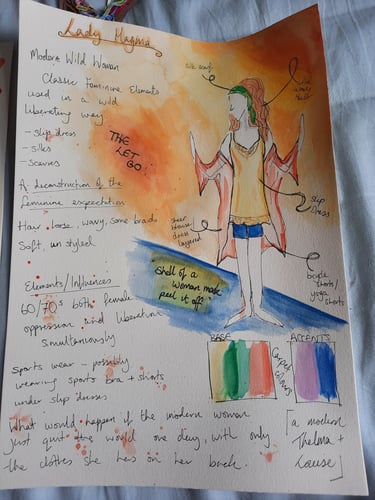 Lady Magma
Modern Wild Woman
Classic Feminine Elements
used in a wild
liberating way
- slip dress
- silks
- scarves
A deconstruction of the
feminine expectation
Hair loose, wavy, some braids
Soft, un styled
Elements/Influences
60/70s both female
oppression and liberation
simultaneously
Sports wear - possibly
wearing sports bra + shorts
under slip dresses
What would happen if the modern woman
just quit the world one day, with only
the clothes she has on her back.
[a modern
Thelma +
Louise]
THE
LET
GO!
silk scarf
slip
dress
sheer
house
dress
layered
bicycle
shorts/
yoga
shorts
shell of a
woman mode
peel it off
BASE
ACCENTS
Colours